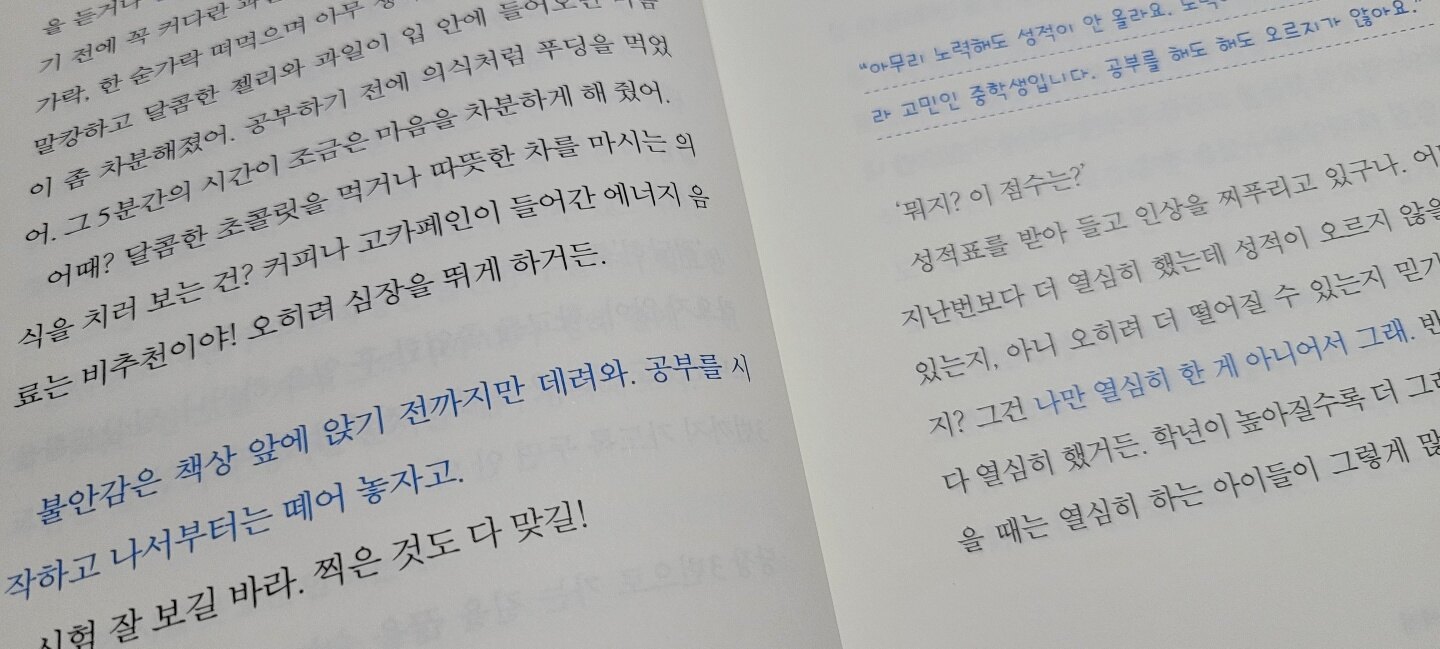 을 듣거나
기 전에 꼭 커다란
가락, 한 숟가락 떠먹으며 아무
말캉하고 달콤한 젤리와 과일이 입 안에
이 좀 차분해졌어. 공부하기 전에 의식처럼 푸딩을 먹었
어. 그 5분간의 시간이 조금은 마음을 차분하게 해 줬어.
어때? 달콤한 초콜릿을 먹거나 따뜻한 차를 마시는 의
식을 치러 보는 건? 커피나 고카페인이 들어간 에너지 음
료는 비추천이야! 오히려 심장을 뛰게 하거든.
불안감은 책상 앞에 앉기 전까지만 데려와. 공부를 시
작하고 나서부터는 떼어 놓자고.
시험 잘 보길 바라. 찍은 것도 다 맞길!
“아무리 노력해도 성적이 안 올라요.
라 고민인 중학생입니다. 공부를 해도 해도 오르지가 않아요.”
‘뭐지? 이 점수는?’
성적표를 받아 들고 인상을 찌푸리고 있구나.
지난번보다 더 열심히 했는데 성적이 오르지 않을
있는지, 아니 오히려 더 떨어질 수 있는지 믿기
지? 그건 나만 열심히 한 게 아니어서 그래.
다 열심히 했거든. 학년이 높아질수록 더
을 때는 열심히 하는 아이들이 그렇게